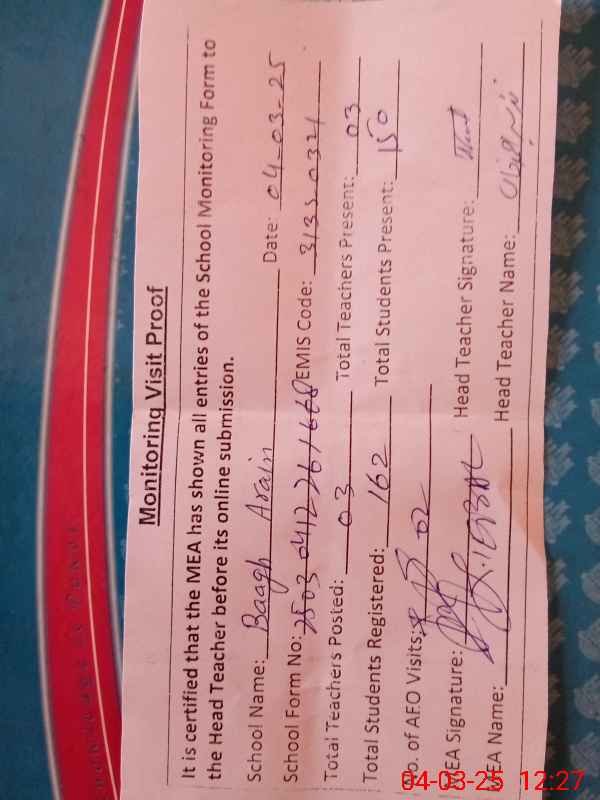 Monitoring Visit Proof
It is certified that the MEA has shown all entries of the School Monitoring Form to
the Head Teacher before its online submission.
School Name: Baagh Arain Date: 04-03-25
School Form No: 2503 0412 261668 EMIS Code: 31330321
Total Teachers Posted: 03 Total Teachers Present: 03
Total Students Registered: 162 Total Students Present: 150
No. of AEO Visits: 02
MEA Signature: Head Teacher Signature:
MEA Name: Head Teacher Name:
04-03-25 12:27